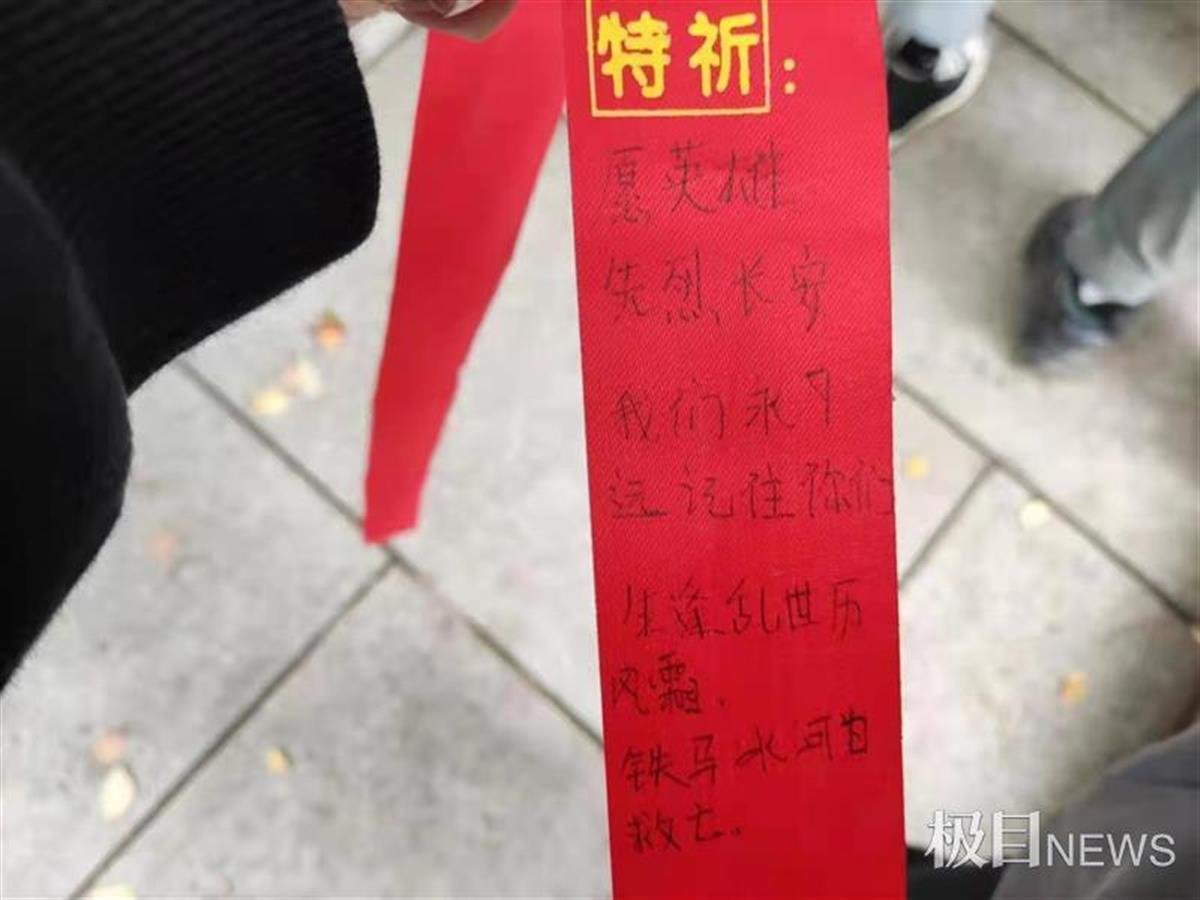 特祈：
愿英雄
先烈长安
我们永
远记住你们
生逢乱世历
风霜.
铁马冰河自
救亡.
极目NEWS